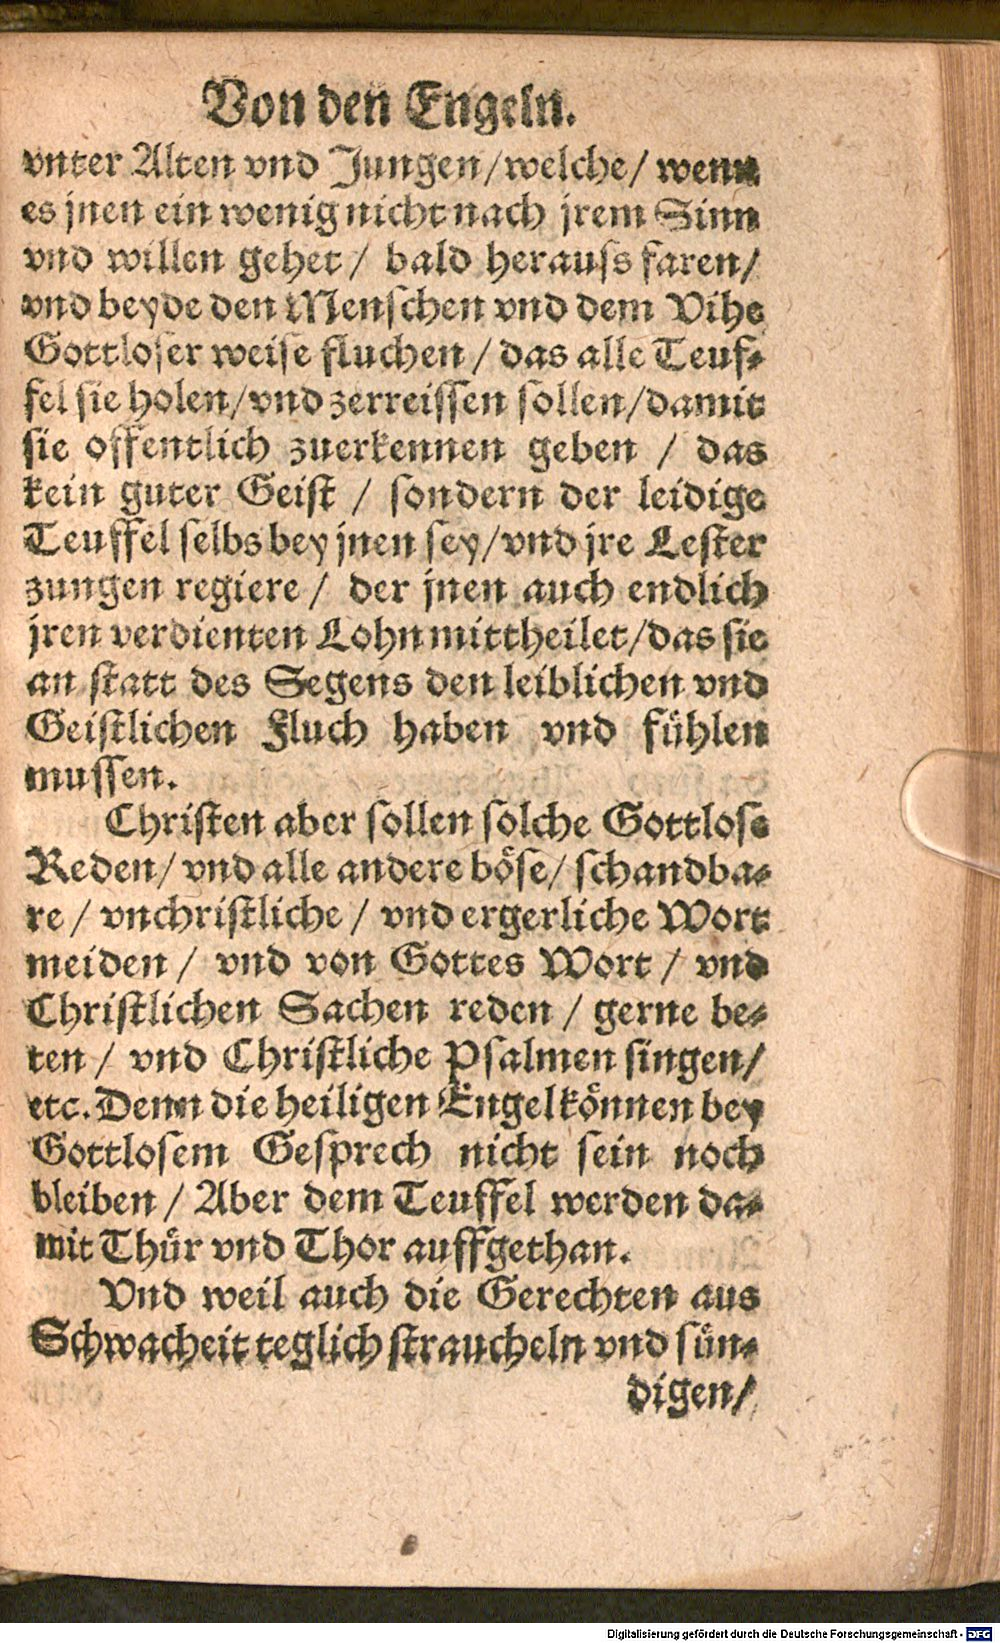 Von den Engeln.
vnter Alten vnd Jungen/welche/ wenn
es jnen ein wenig nicht nach jrem Sinn
vnd willen gehet / bald herauss faren/
vnd beyde den Menschen vnd dem Vihe
Gottloser weise fluchen / das alle Teuf-
fel sie holen/vnd zerreissen sollen/damit
sie offentlich zuerkennen geben / das
kein guter Geist / sondern der leidige
Teuffel selbs bey jnen sey/vnd jre Lester
zungen regiere / der jnen auch endlich
jren verdienten Lohn mittheilet/das sie
an statt des Segens den leiblichen vnd
Geistlichen Fluch haben vnd fühlen
mussen.
Christen aber sollen solche Gottlose
Reden/ vnd alle andere böse/ schandba-
re / vnchristliche / vnd ergerliche Wort
meiden / vnd von Gottes Wort / vnd
Christlichen Sachen reden / gerne be-
ten / vnd Christliche Psalmen singen/
etc. Denn die heiligen Engel können bey
Gottlosem Gesprech nicht sein noch
bleiben / Aber dem Teuffel werden da-
mit Thür vnd Thor auffgethan.
Vnd weil auch die Gerechten aus
Schwacheit teglich straucheln vnd sün-
digen/
Digitalisierung gefördert durch die Deutsche Forschungsgemeinschaft - DFG